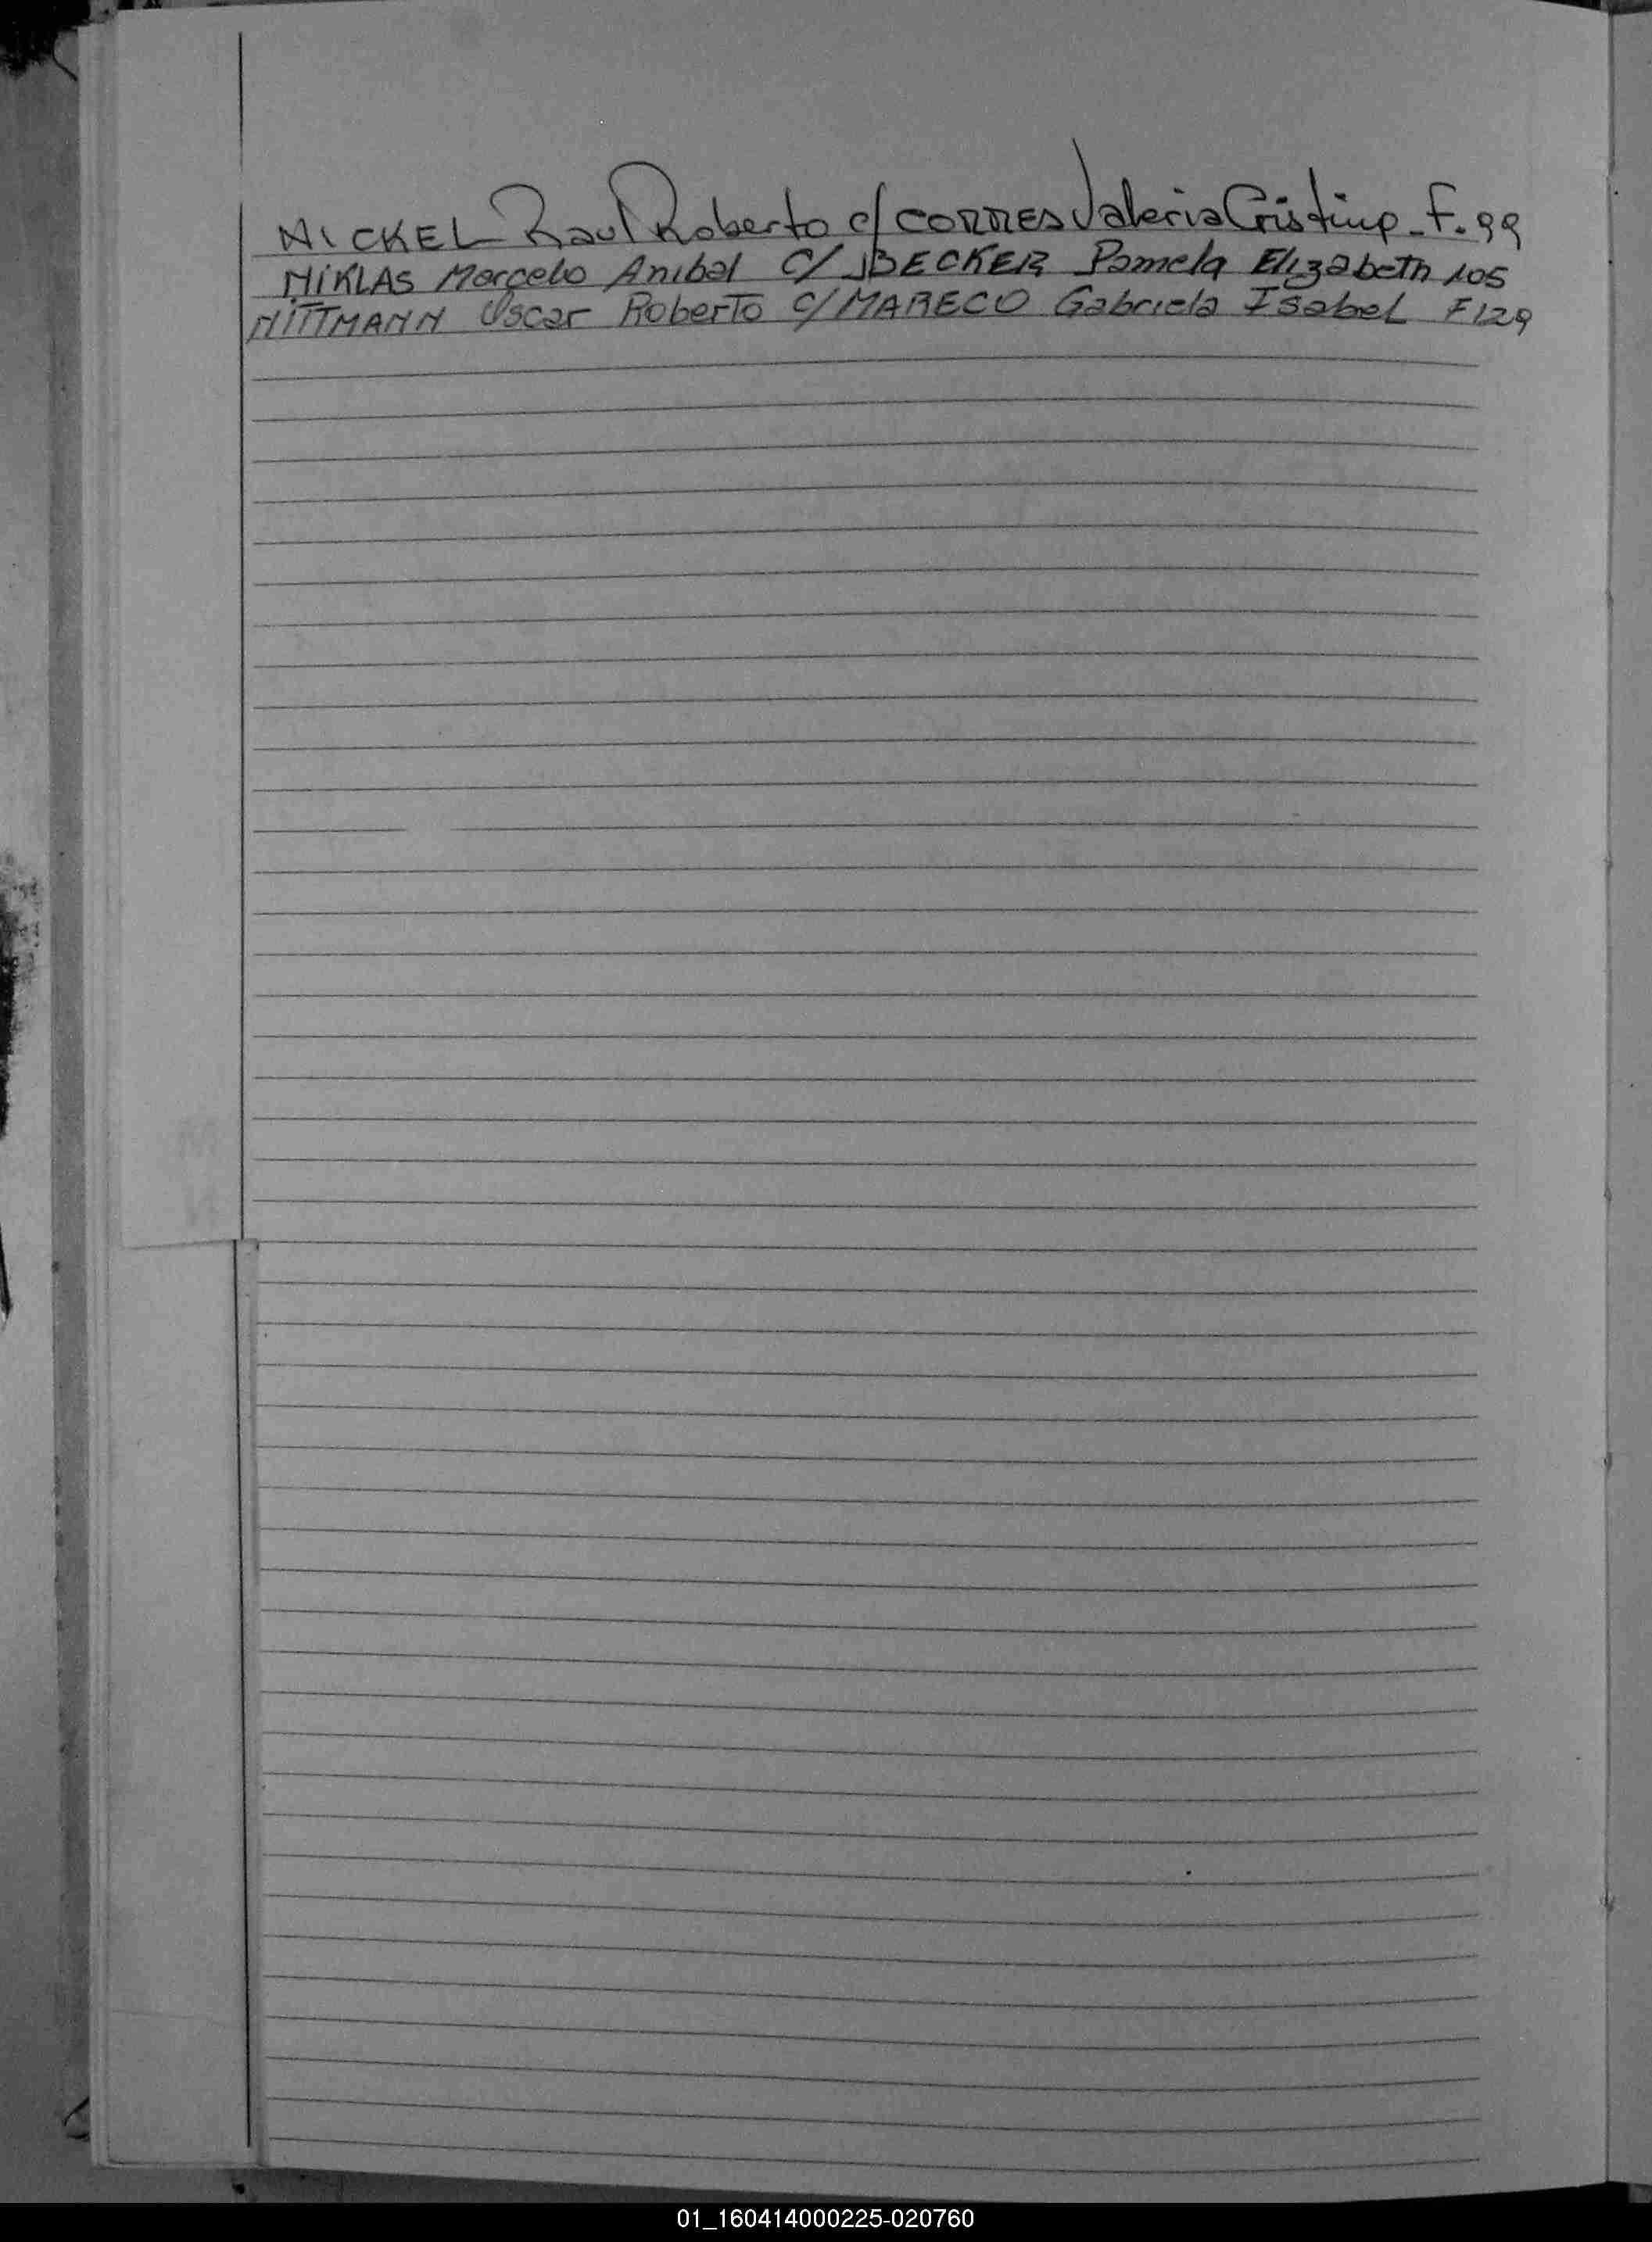 NICKEL Raul Roberto c/ CORRES Valeria Cristina - F. 99
NIKLAS Marcelo Anibal C/ BECKER Pamela Elizabeth 105
NITTMANN Oscar Roberto C/ MARECO Gabriela Isabel F 129
M
N
01_160414000225-020760